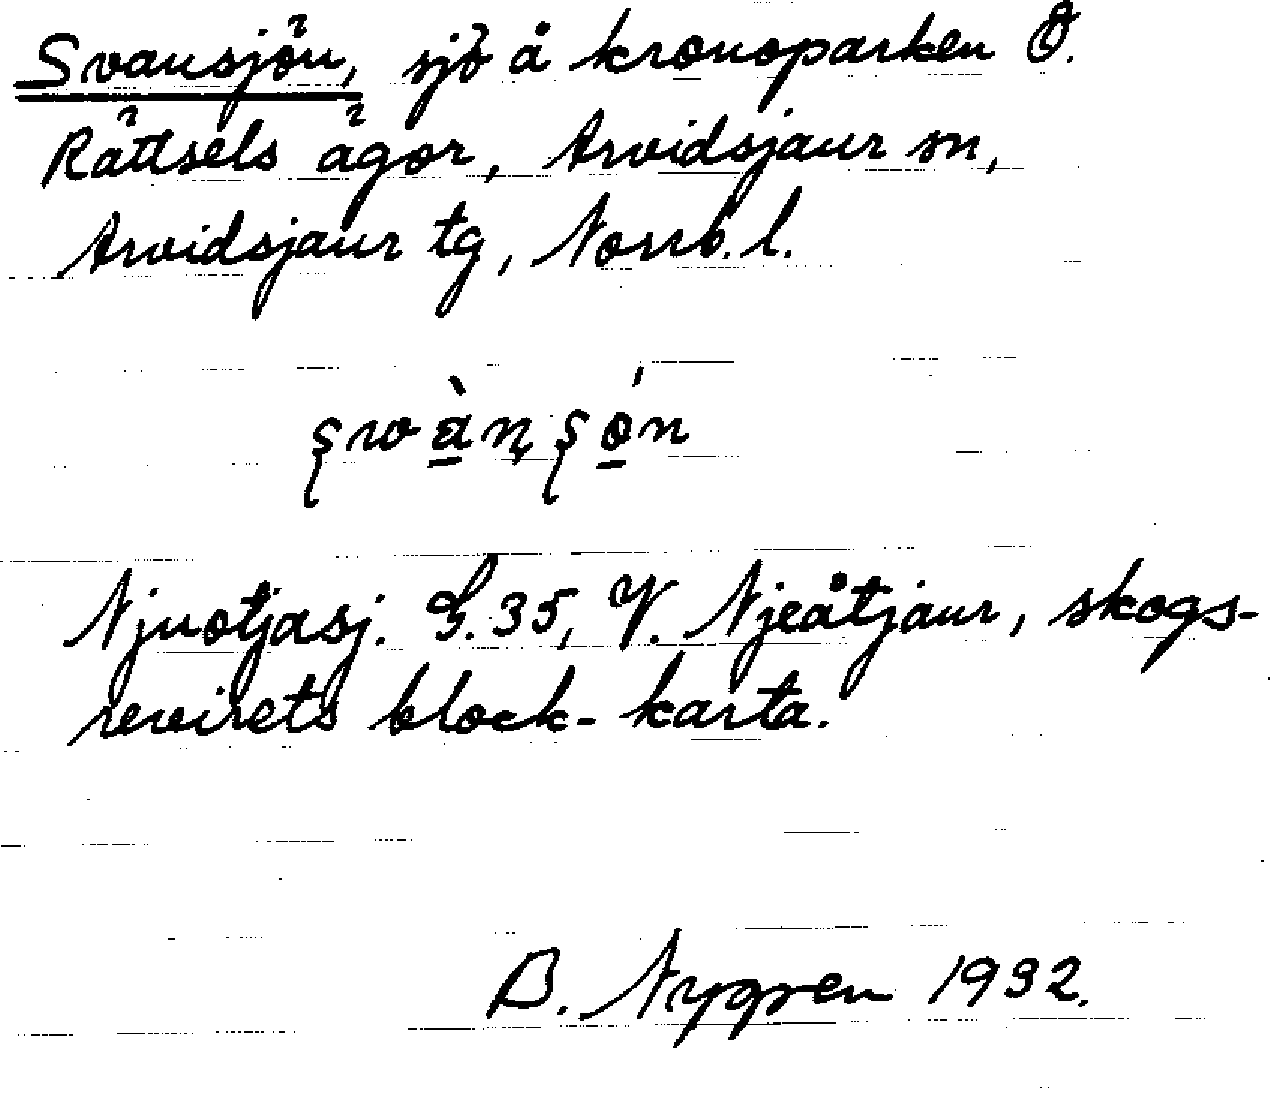 Svansjön, sjö å kronoparken Ö.
Rättsels ägor, Arvidsjaur sn,
Arvidsjaur tg, Norrb. l.
Njuotjasj. G. 35, V. Njeåtjaur, skogs-
revirets block-karta.
B. Nygren 1932.